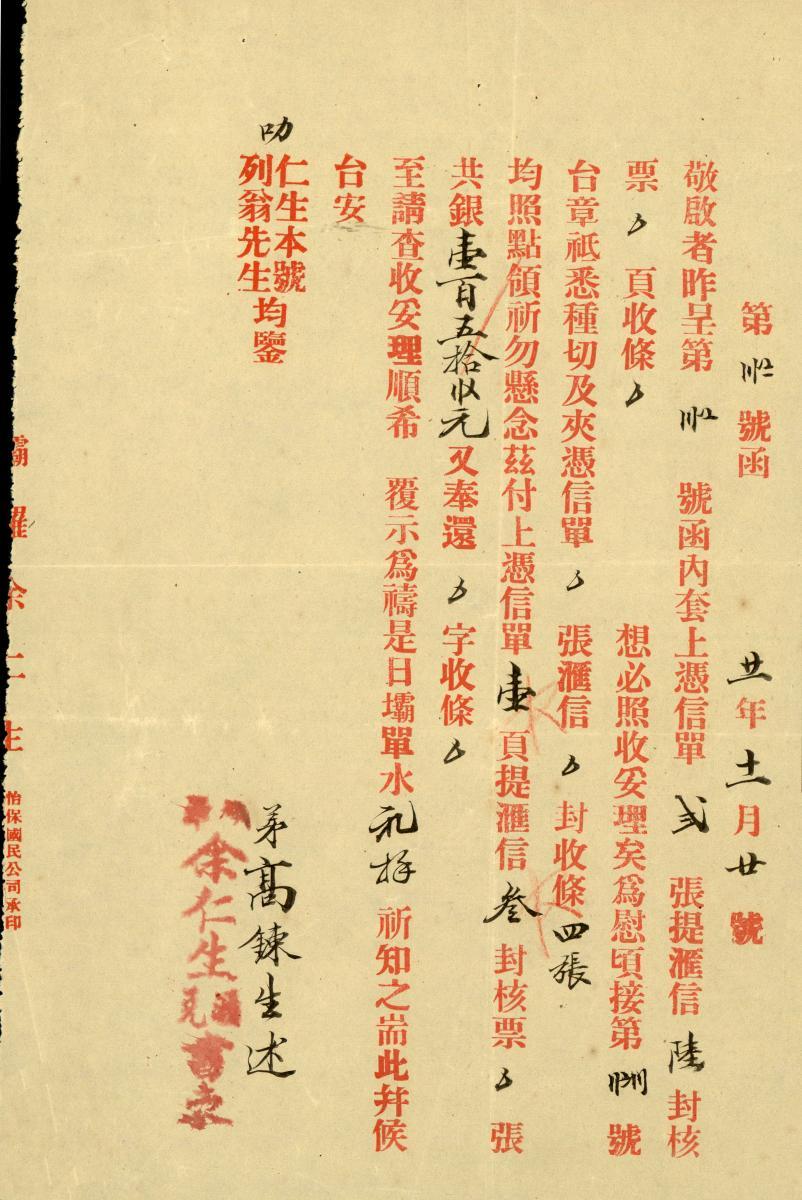 第 號函
廿一年十二月廿號
敬啟者昨呈第 號函內套上憑信單 弍 張提滙信 陸 封核
票 頁收條 想必照收妥理矣為慰頃接第 號
台章祗悉種切及夾憑信單 張滙信 封收條 四張
均照點領祈勿懸念茲付上憑信單 壹 頁提滙信 叁 封核票 張
共銀壹百五拾 元又奉還 字收條
至請查收妥理順希 覆示為禱是日壩單水 祈知之耑此并候
台安
仁生本號均鑒
叻列翁先生
弟高鍊生述
余仁生
霸羅余仁生 怡保國民公司承印